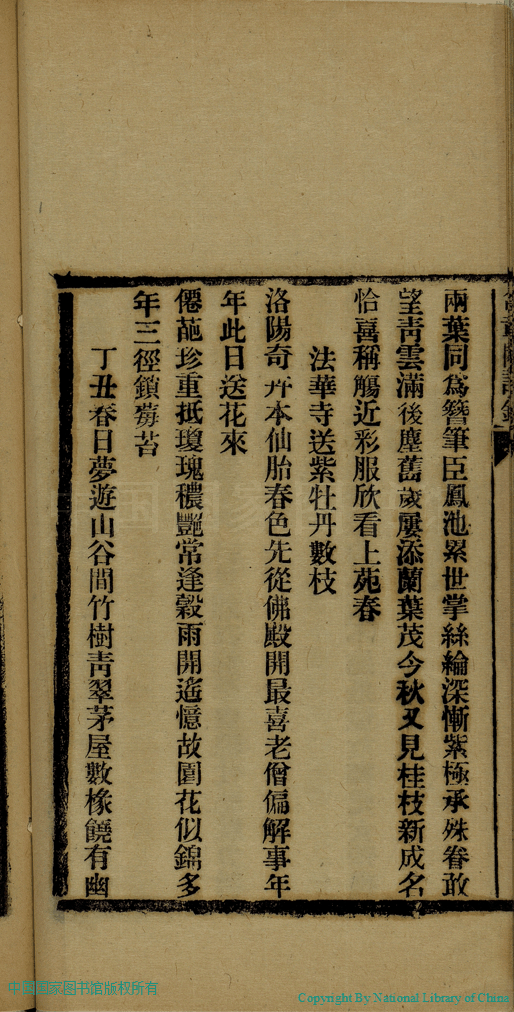 兩葉同為簪筆臣鳳池累世掌絲綸深慚紫極承殊眷敢
望靑雲滿後塵舊歲屢添蘭葉茂今秋又見桂枝新成名
恰喜稱觴近彩服欣看上苑春
法華寺送紫牡丹數枝
洛陽奇卉本仙胎春色先從佛殿開最喜老僧偏解事年
年此日送花來
僊葩珍重抵瓊瑰穠艷常逢穀雨開遙憶故園花似錦多
年三徑鎖莓苔
丁丑春日夢遊山谷間竹樹靑翠茅屋數椽饒有幽
中国国家图书馆版权所有
Copyright By National Library of China